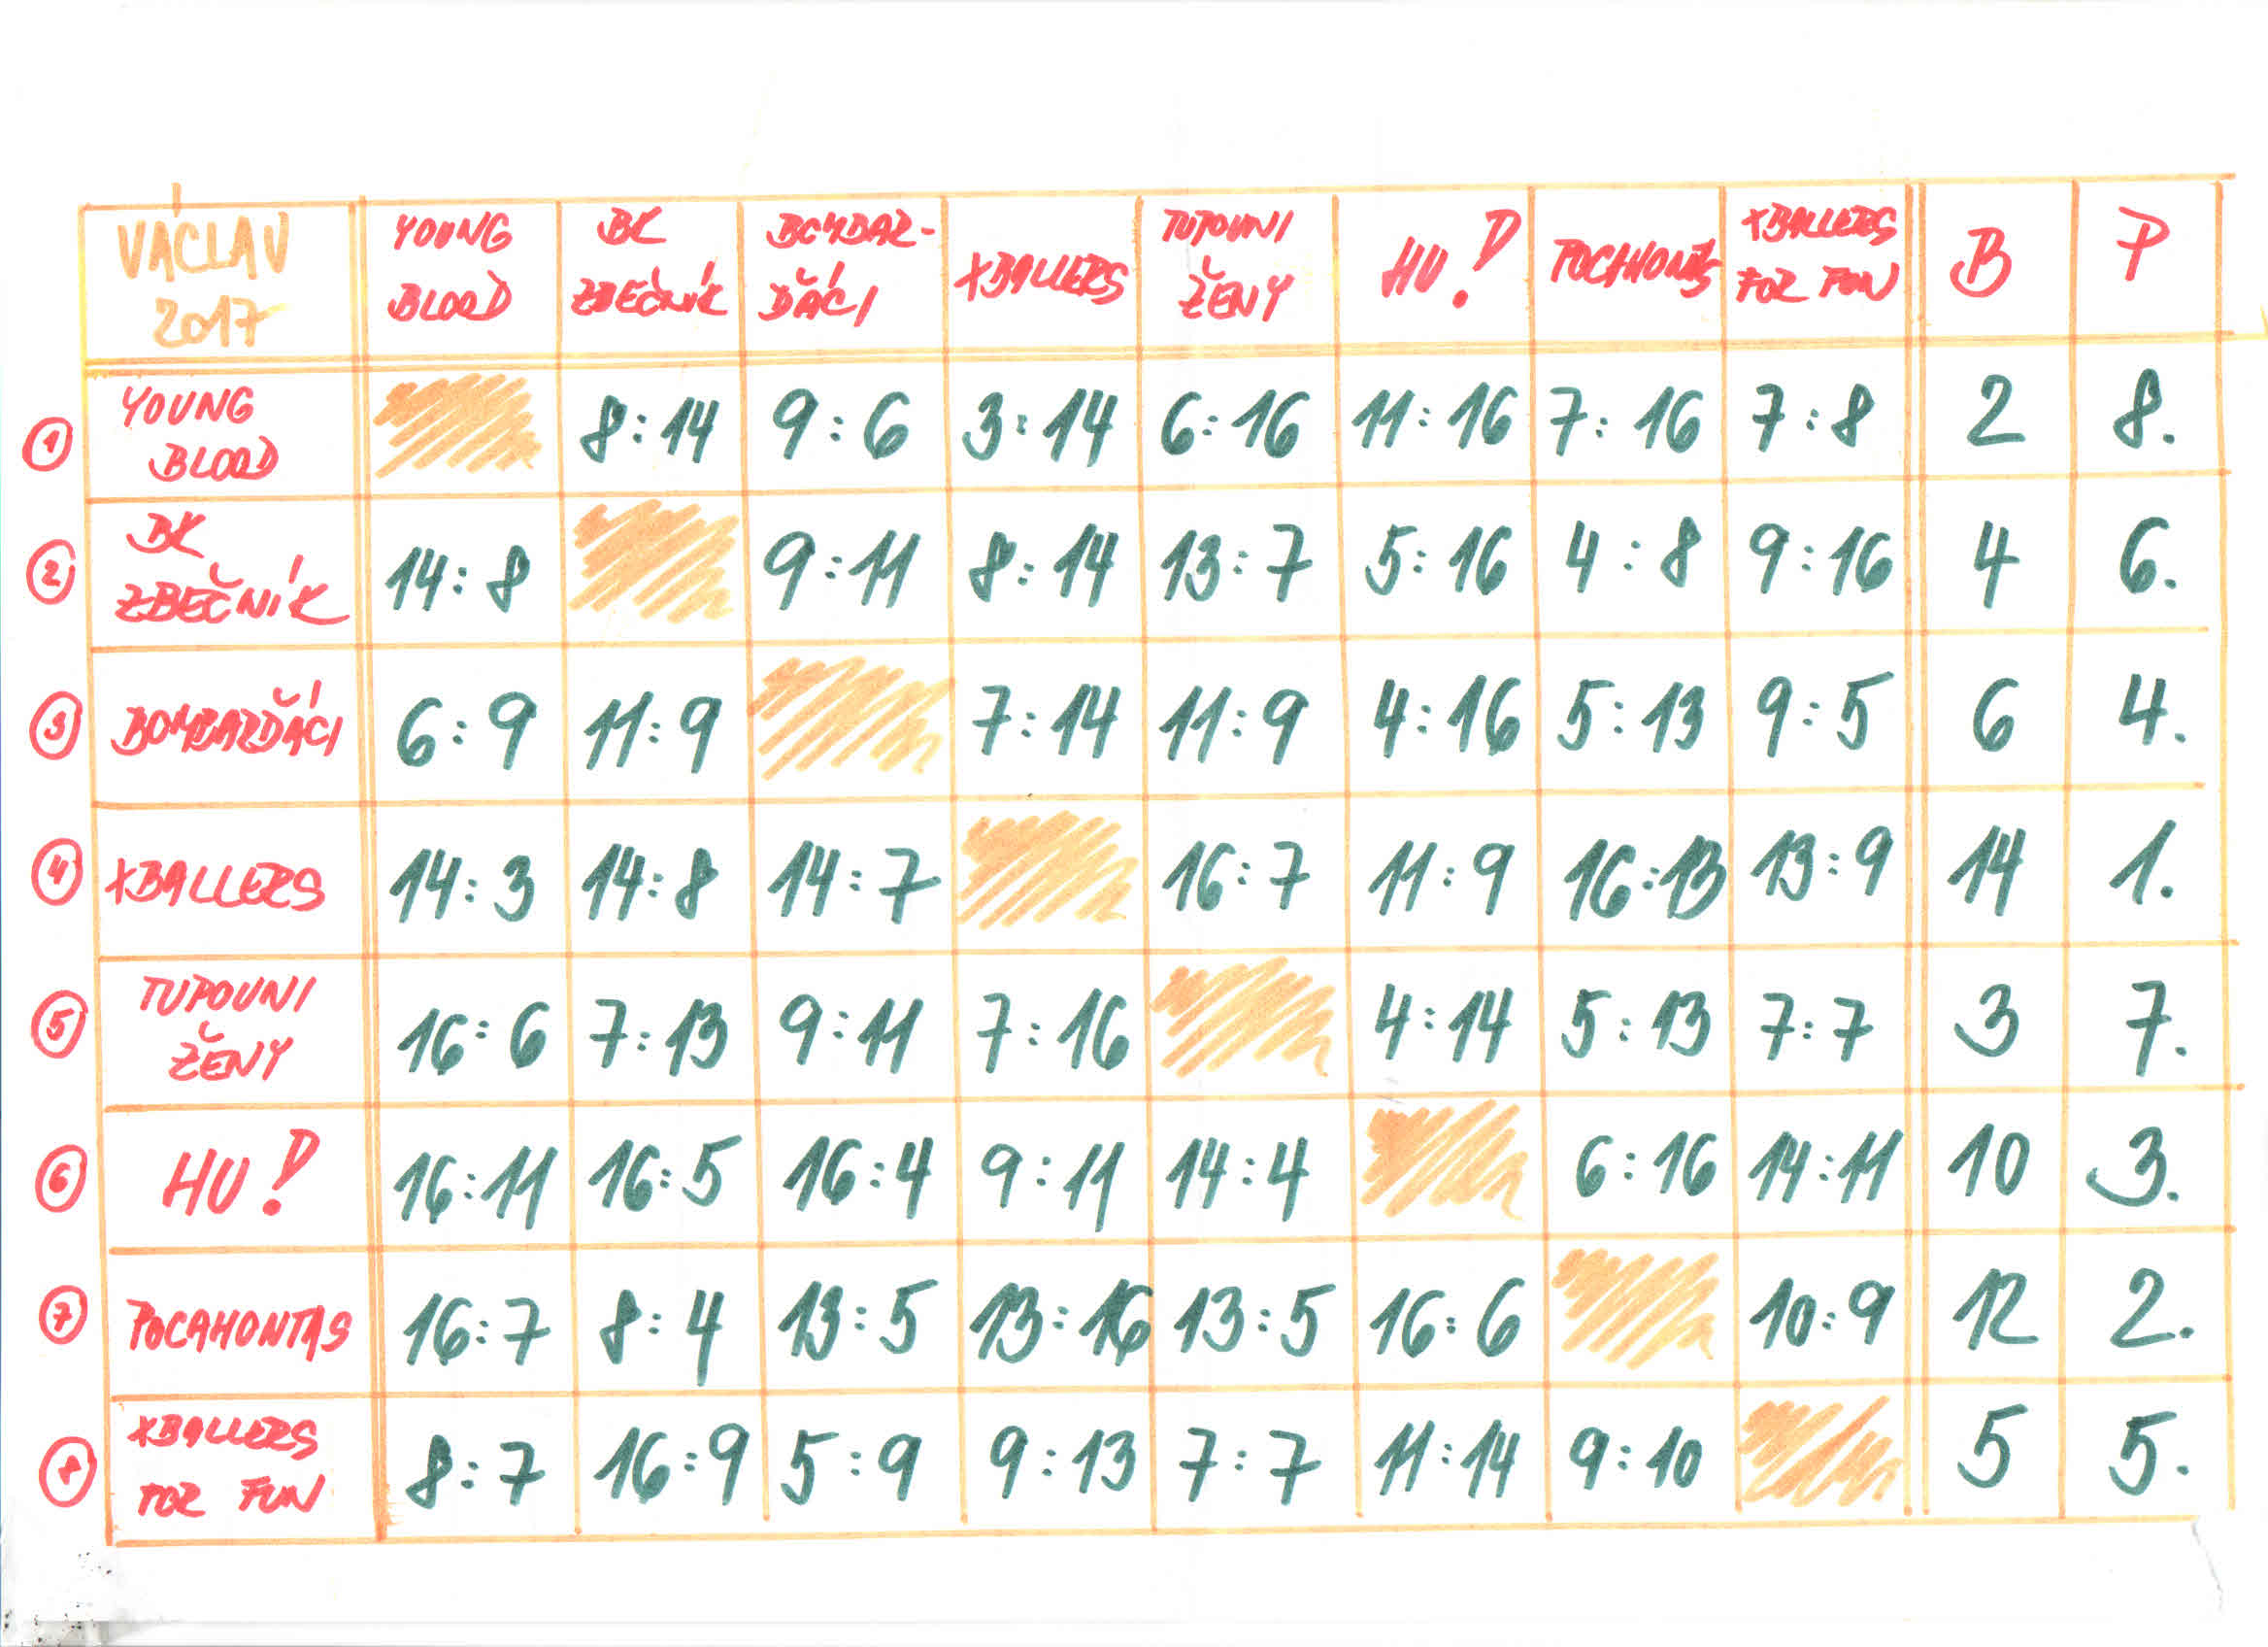 VÁCLAV 2017 YOUNG BLOOD BK ZBEČNÍK BOMBAR-ĎÁCI XBALLERS TUPOUNI ŽENY HU! POCAHONTAS XBALLERS FOR FUN B P
1 YOUNG BLOOD 8:14 9:6 3:14 6:16 11:16 7:16 7:8 2 8.
2 BK ZBEČNÍK 14:8 9:11 8:14 13:7 5:16 4:8 9:16 4 6.
3 BOMBARĎÁCI 6:9 11:9 7:14 11:9 4:16 5:13 9:5 6 4.
4 XBALLERS 14:3 14:8 14:7 16:7 11:9 16:13 13:9 14 1.
5 TUPOUNI ŽENY 16:6 7:13 9:11 7:16 4:14 5:13 7:7 3 7.
6 HU! 16:11 16:5 16:4 9:11 14:4 6:16 14:11 10 3.
7 POCAHONTAS 16:7 8:4 13:5 13:16 13:5 16:6 10:9 12 2.
8 XBALLERS FOR FUN 8:7 16:9 5:9 9:13 7:7 11:14 9:10 5 5.